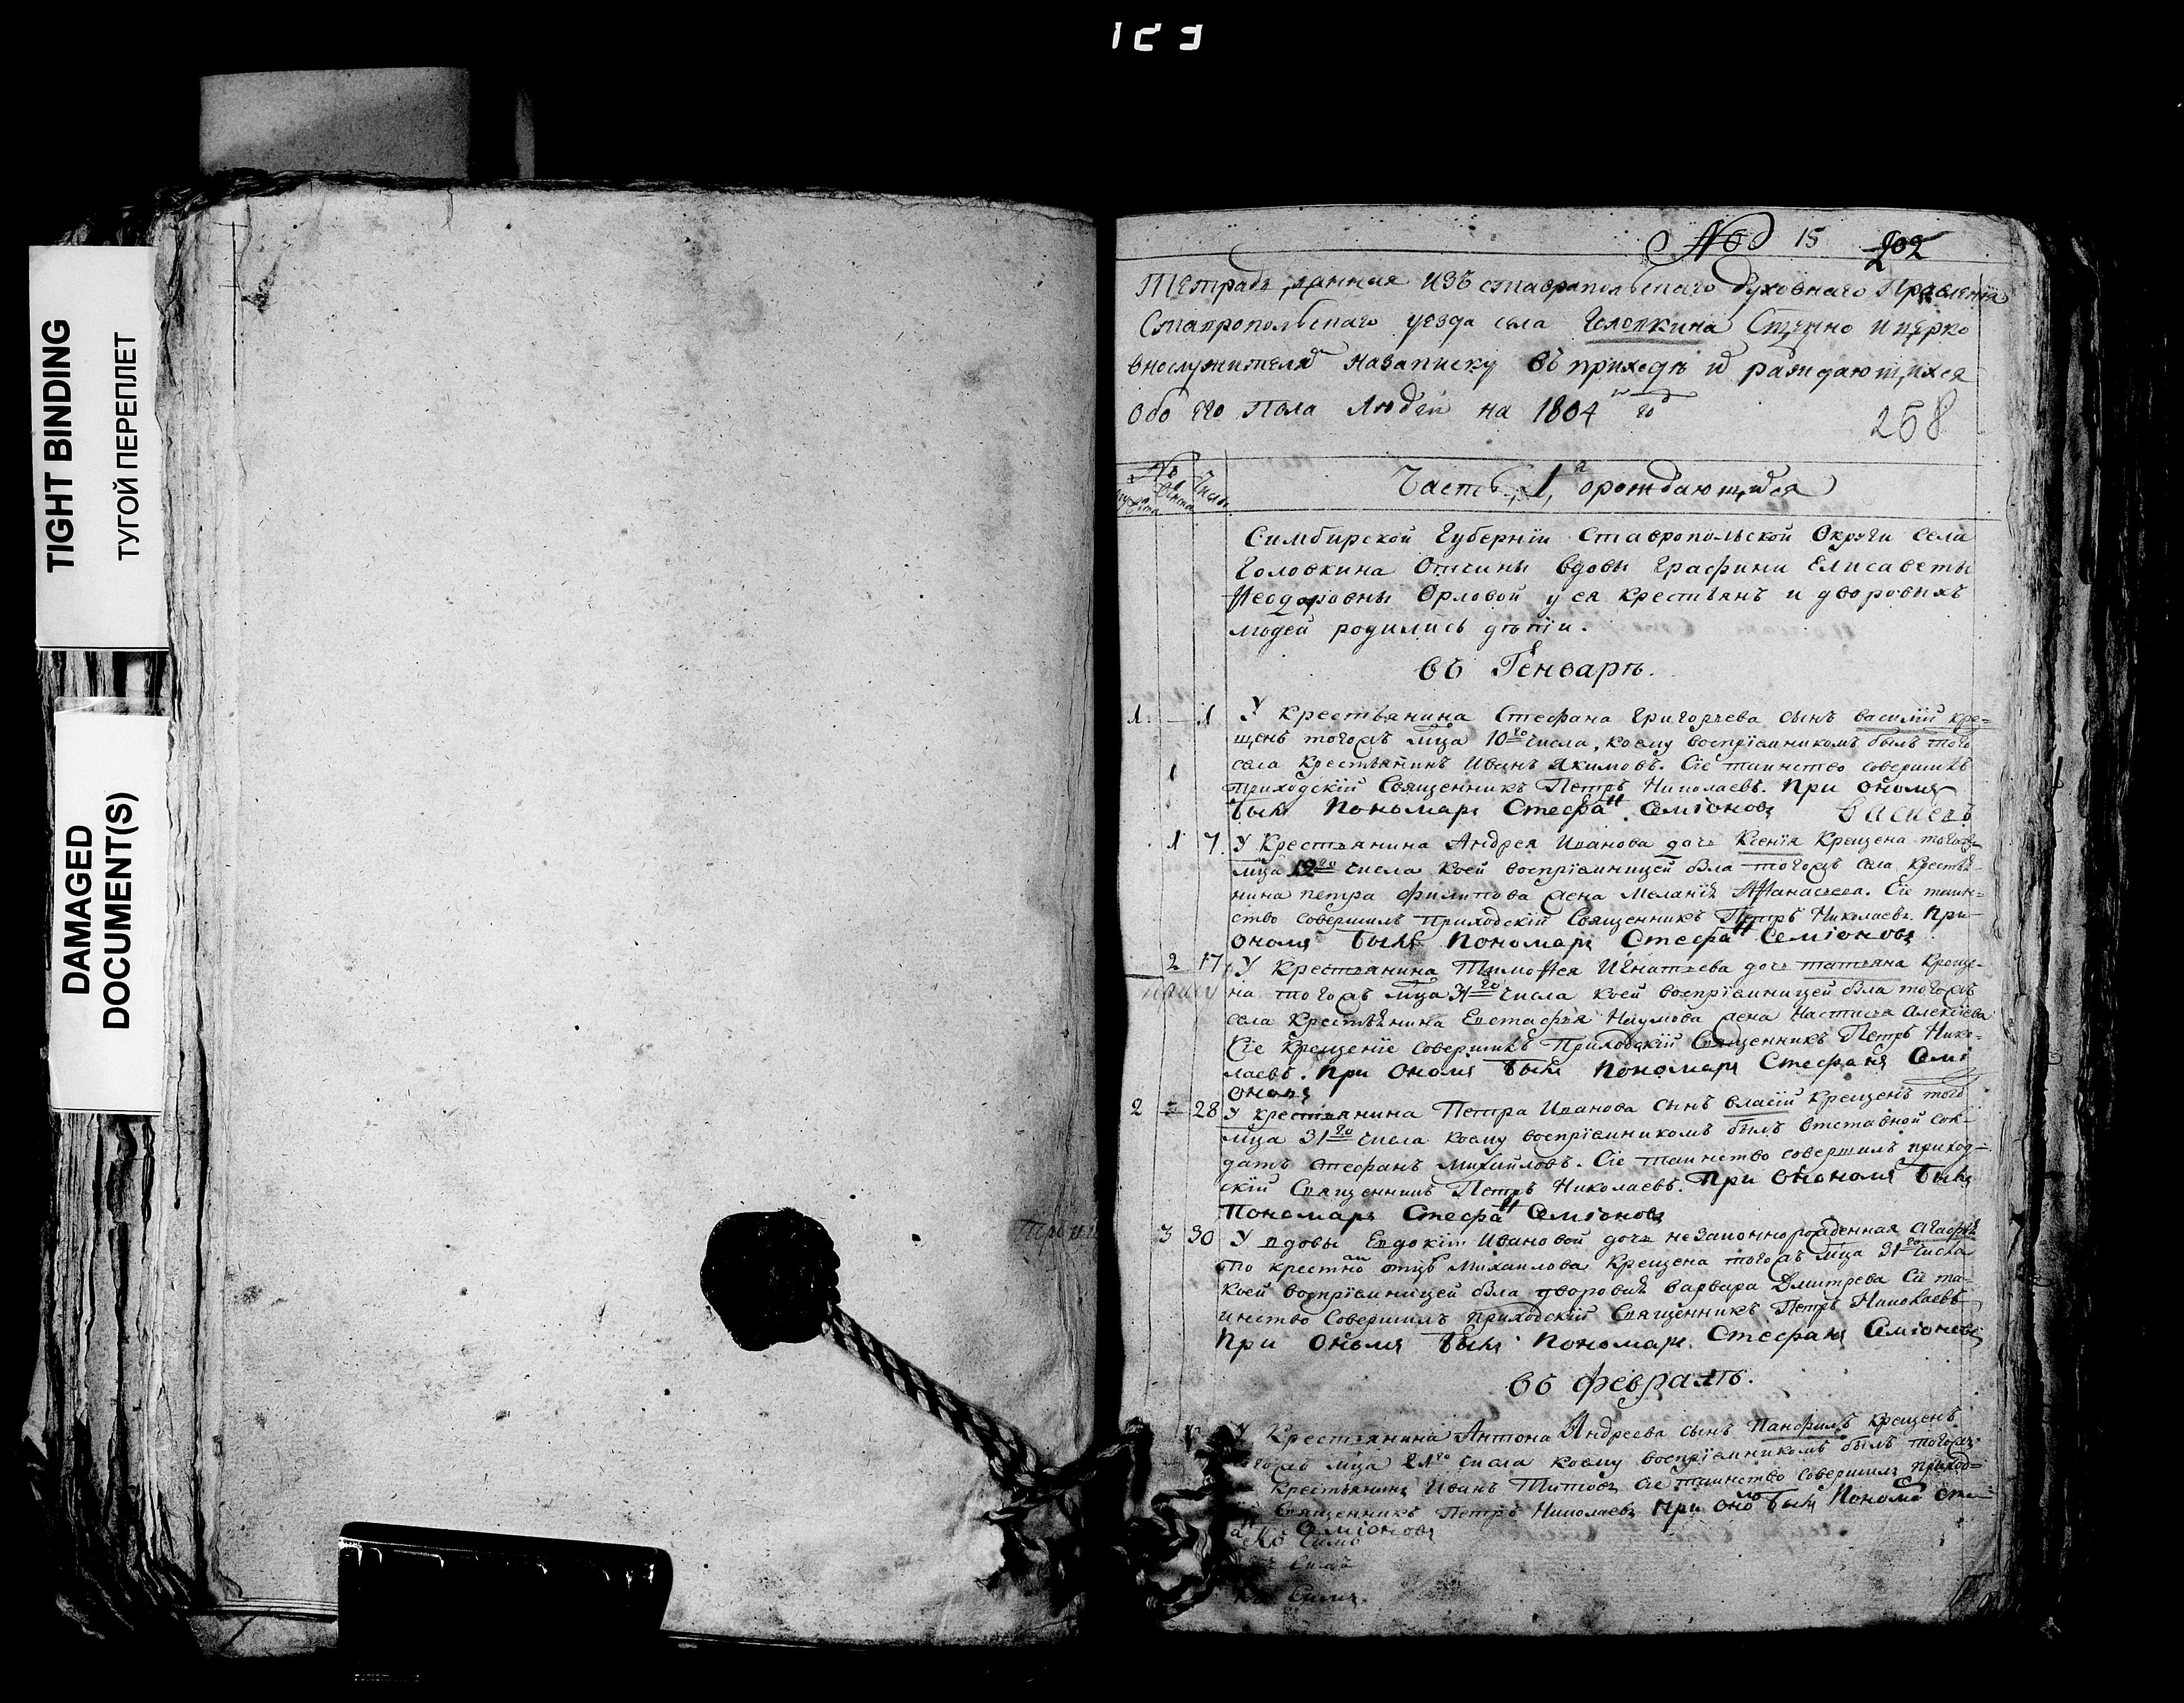 123
TIGHT BINDING
ТУГОЙ ПЕРЕПЛЕТ
DAMAGED
DOCUMENT(S)
№ 15 202
Тетрадь данная изъ ставропольскаго духовнаго Правленія
Ставропольскаго уезда села Головкина Сщенно и церко
внослужителямъ на записку въ приходѣ ихъ раждающихся
обоего пола людей на 1804 й годъ
268
№ Число
Часть 1я о рождающихся
Симбирской Губерніи Ставропольской Округи села
Головкина Отчины вдовы Графини Елисаветы
Ѳеодоровны Орловой у ея крестьянъ и дворовыхъ
людей родились дѣти.
въ Генварѣ.
1. — 1 У крестьянина Стефана Григорьева сынъ василій кре=
щенъ тогожъ мца 10го числа, коему воспріемникомъ былъ того
села крестьянинъ Иванъ Якимовъ. Сіе таинство совершилъ
приходскій Священникъ Петръ Николаевъ. При ономъ
былъ Пономарь Стефанъ Семіоновъ
1 7. У Крестьянина Андрея Иванова дочь Ксенія Крещена тогожъ
мца 12го числа коей воспріемницей бла тогожъ села крестья-
нина петра Филипова жена Меланія Аѳанасьева. Сіе таин=
ство совершилъ приходскій Священникъ Петръ Николаевъ. При
ономъ былъ Пономарь Стефанъ Семіоновъ
2 17 У Крестьянина Тимоѳея Игнатьева дочь татьяна креще-
на тогожъ мца 31го числа коей воспріемницей бла тогожъ
села Крестьянина Евстафья Наумова жена Настасья Алексіева
Сіе Крещеніе совершилъ Приходскій Священникъ Петръ Нико-
лаевъ. При Ономъ былъ Пономарь Стефанъ Семі
оновъ
2 = 28 У крестьянина Петра Иванова сынъ власій крещенъ того
мца 31го числа коему воспріемникомъ былъ отставной сол-
датъ стефанъ Михайловъ. Сіе таинство совершилъ приход-
скій Священникъ Петръ Николаевъ. При ономъ былъ
Пономарь Стефанъ Семіоновъ
3 30 У вдовы Евдокіи Ивановой дочь незаконнорожденная агафья
по крестному отцѣ Михаилова Крещена тогожъ мца 31го числа
коей воспріемницей бла дворовая Варвара Дмитрева Сіе та-
инство Совершилъ приходскій Священникъ Петръ Николаевъ
При Ономъ былъ Пономарь Стефанъ Семіоновъ
въ февралѣ.
У Крестьянина Антона Андреева сынъ Панфилъ крещенъ
тогожъ мца 21го числа коему воспріемникомъ былъ тогожъ
Крестьянинъ Иванъ Титовъ Сіе таинство совершилъ приход=
Священникъ Петръ Николаевъ При ономъ былъ Пономарь Сте
Семіоновъ